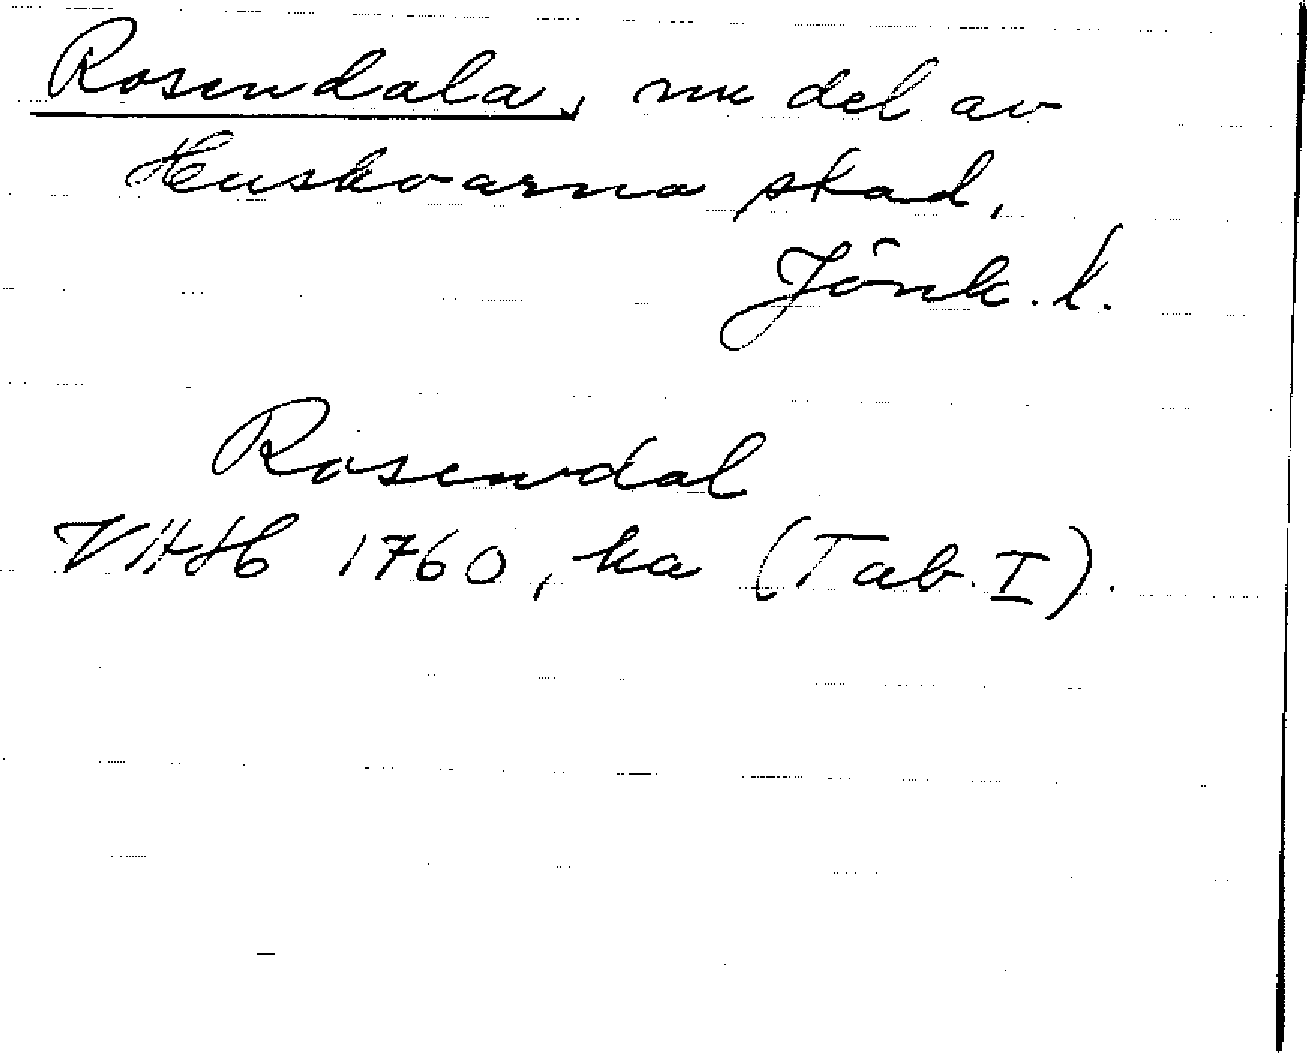 Rosendala, nu del av
Huskvarna stad,
Jönk. l.
Rosendal
VHAH 1760, ka (Tab. I).